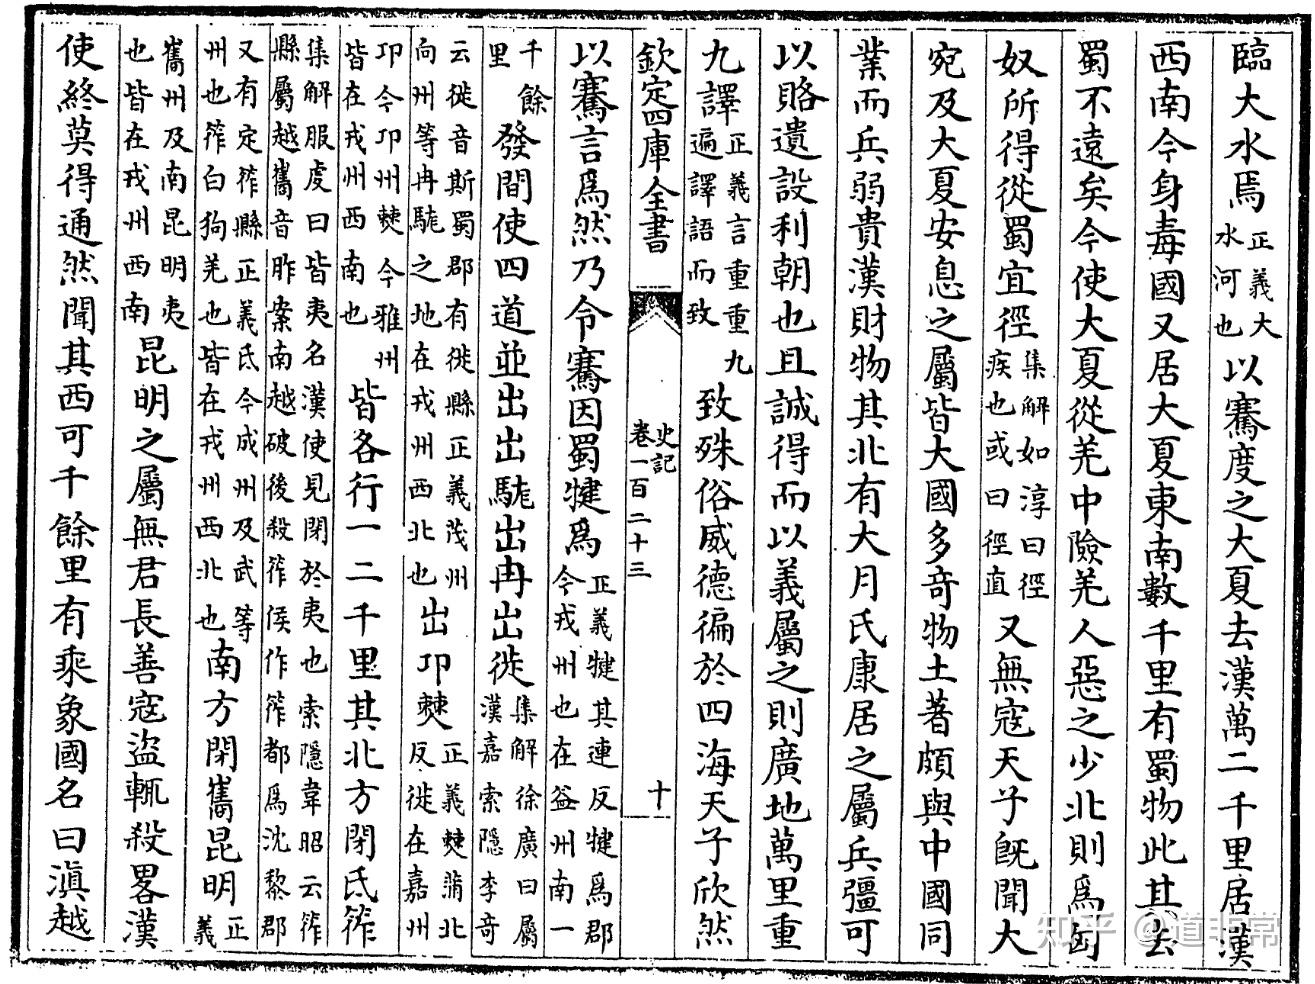 臨大水焉正義大水河也以騫度之大夏去漢萬二千里居漢
西南今身毒國又居大夏東南數千里有蜀物此其去
蜀不遠矣今使大夏從羌中險羌人惡之少北則爲匈
奴所得從蜀宜徑集解如淳曰徑疾也或曰徑直又無寇天子既聞大
宛及大夏安息之屬皆大國多奇物土著頗與中國同
業而兵弱貴漢財物其北有大月氏康居之屬兵彊可
以賂遺設利朝也且誠得而以義屬之則廣地萬里重
九譯正義言重重九遍譯語而致致殊俗威德徧於四海天子欣然
欽定四庫全書 史記卷一百二十三 十
以騫言爲然乃令騫因蜀犍爲正義犍其連反犍爲郡今戎州也在益州南一
千餘里發間使四道並出出駹出冉出徙集解徐廣曰屬漢嘉索隱李奇
云徙音斯蜀郡有徙縣正義茂州向州等冉駹之地在戎州西北也出邛僰正義僰蒲北反徙在嘉州
邛今邛州僰今雅州皆在戎州西南也皆各行一二千里其北方閉氐筰
集解服虔曰皆夷名漢使見閉於夷也索隱韋昭云筰縣屬越巂音昨案南越破後殺筰侯作筰都爲沈黎郡
又有定筰縣正義氐今成州及武等州也筰白狗羌也皆在戎州西北也南方閉巂昆明正義
巂州及南昆明夷也皆在戎州西南昆明之屬無君長善寇盜輒殺畧漢
使終莫得通然聞其西可千餘里有乘象國名曰滇越
知乎 @道非常